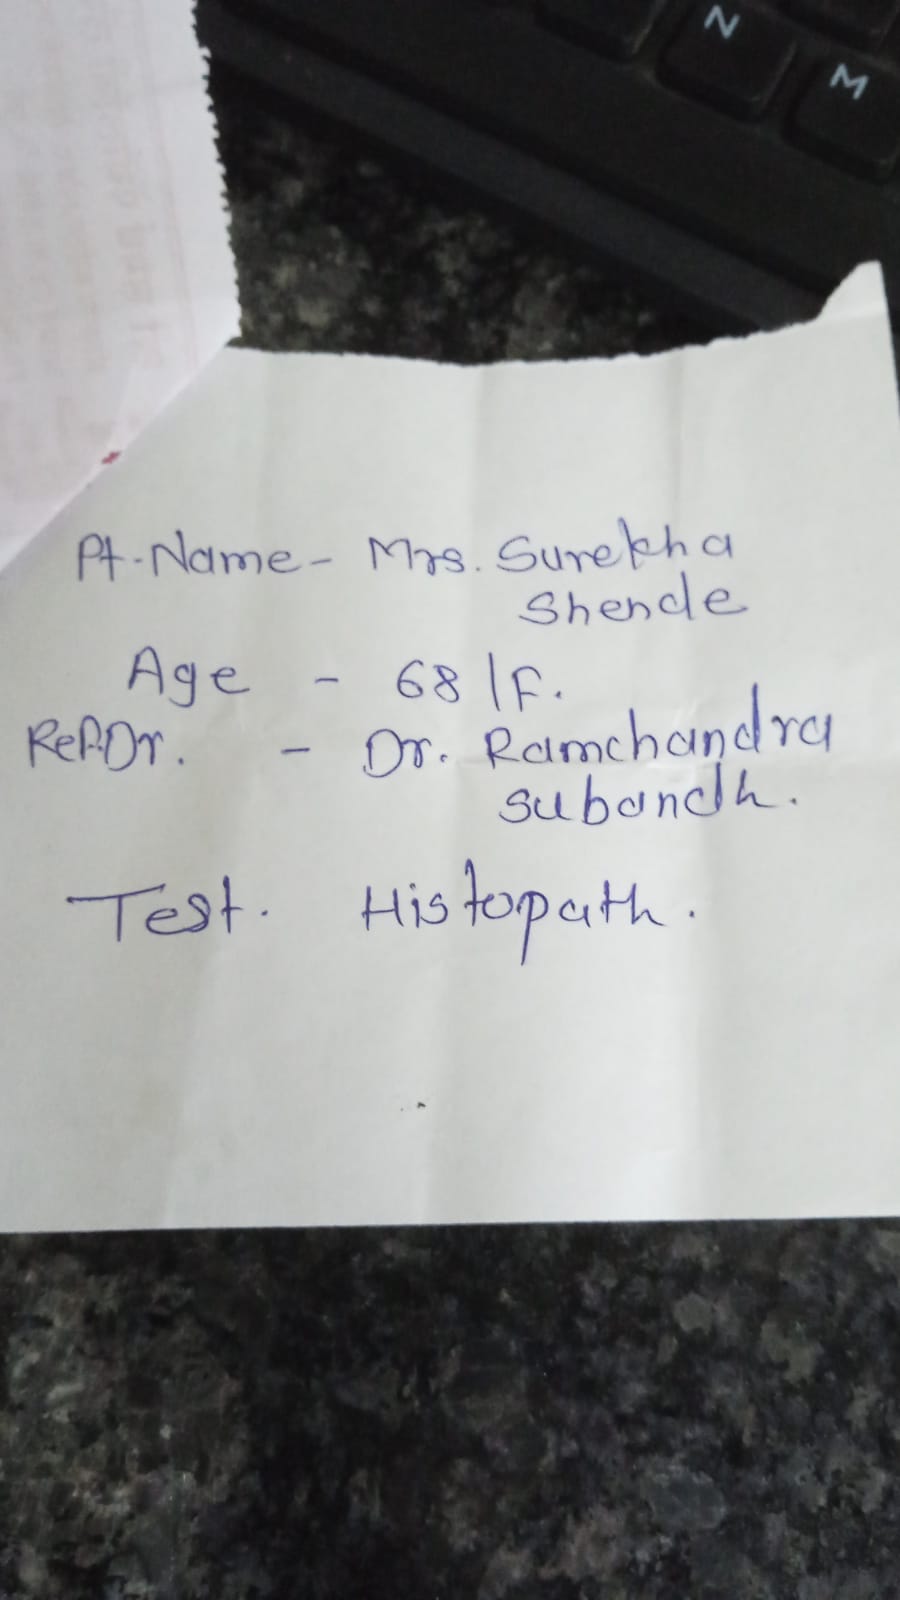 N
M
Pt-Name- Mrs. Surekha
Shende
Age - 68/F.
Ref.Dr. - Dr. Ramchandra
Subandh.
Test. Histopath.